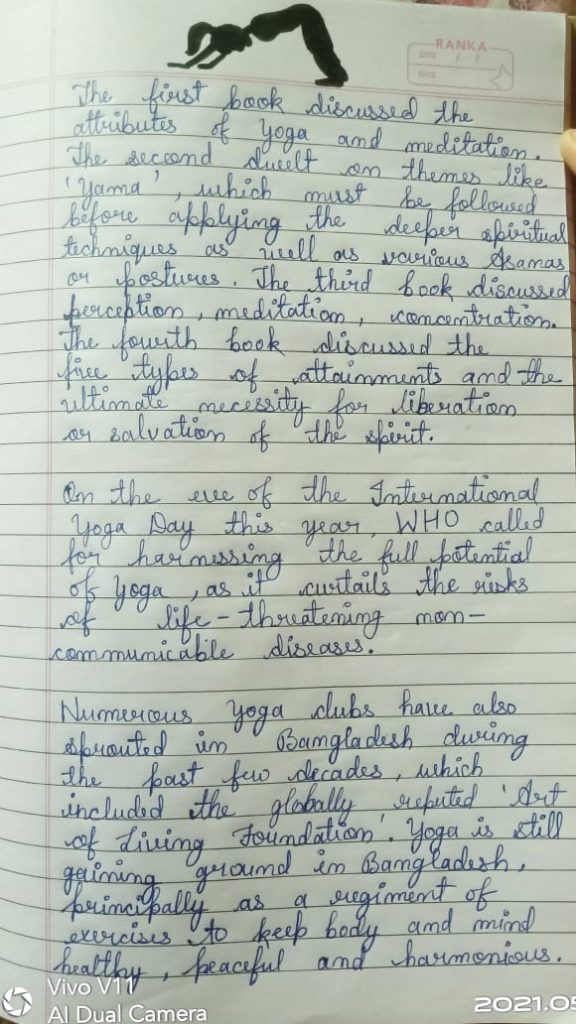 RANKA
DATE / /
PAGE
The first book discussed the
attributes of Yoga and meditation.
The second dwelt on themes like
'Yama', which must be followed
before applying the deeper spiritual
techniques as well as various Asamas
or postures. The third book discussed
perception, meditation, concentration.
The fourth book discussed the
five types of attainments and the
ultimate necessity for liberation
or salvation of the spirit.
On the eve of the International
Yoga Day this year, WHO called
for harnessing the full potential
of Yoga, as it curtails the risks
of life-threatening non-
communicable diseases.
Numerous Yoga clubs have also
sprouted in Bangladesh during
the past few decades, which
included the globally reputed 'Art
of Living Foundation'. Yoga is still
gaining ground in Bangladesh,
principally as a regiment of
exercises to keep body and mind
healthy, peaceful and harmonious.
Vivo V11
AI Dual Camera
2021.05